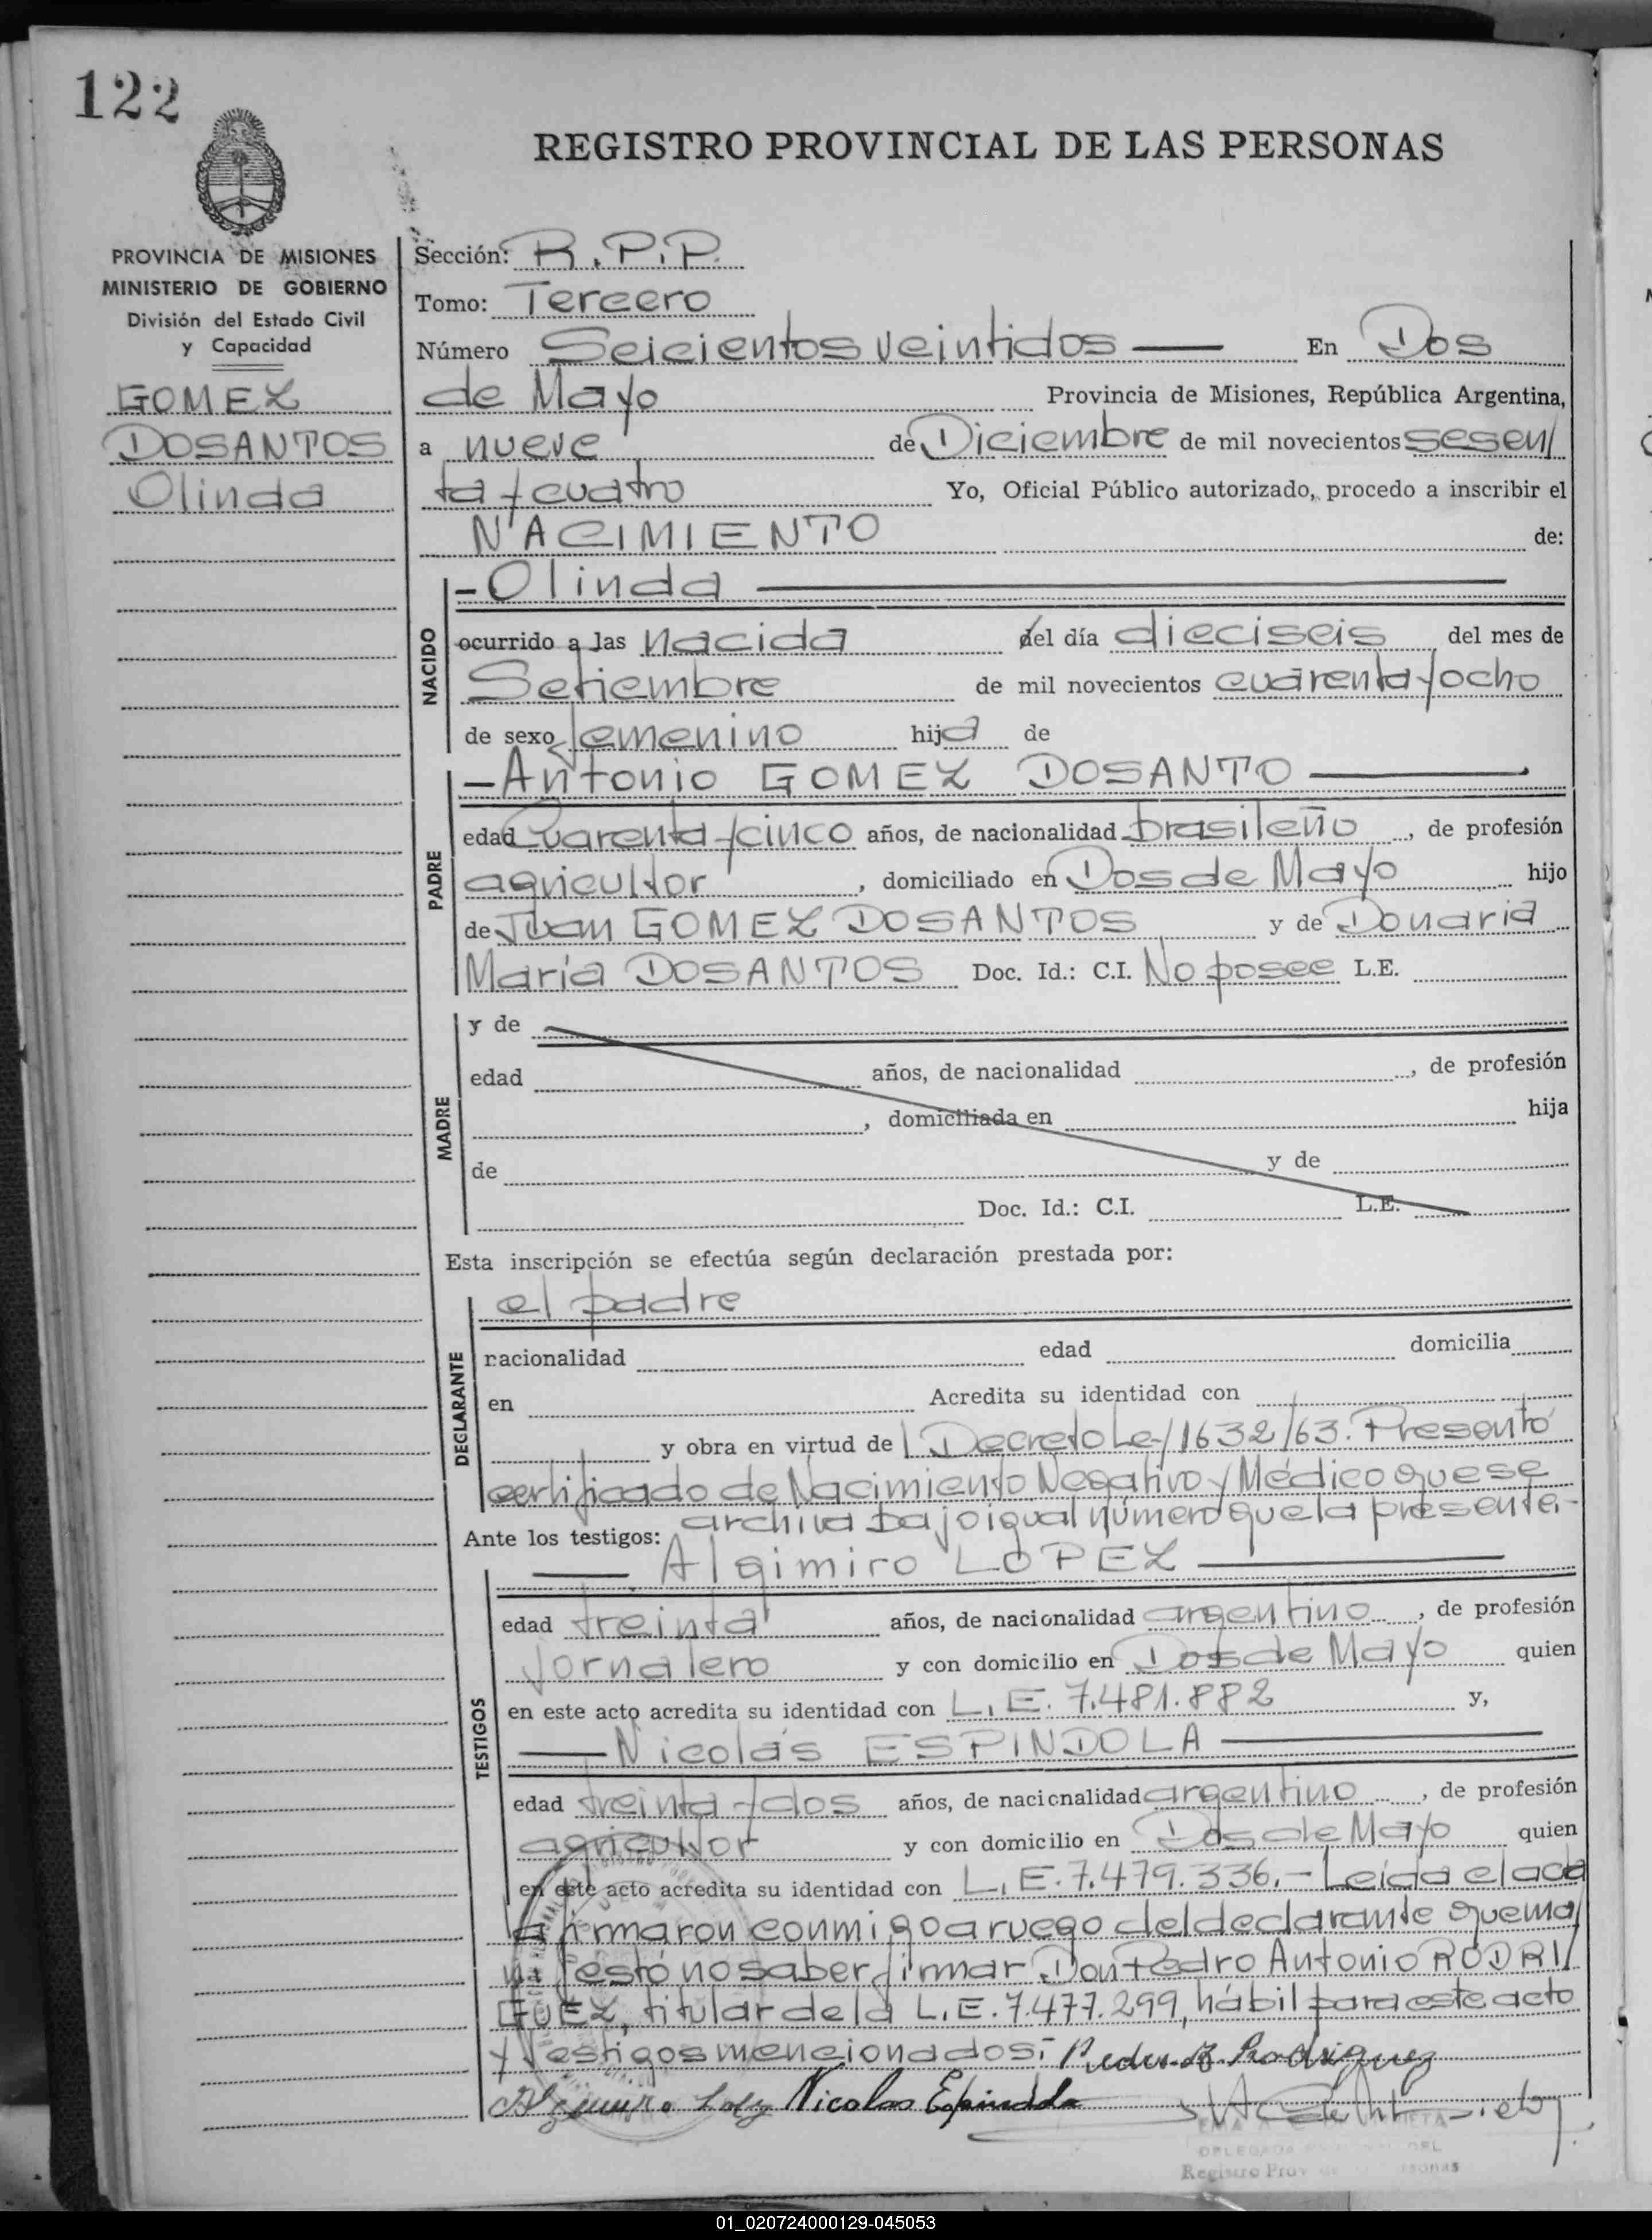 122
REGISTRO PROVINCIAL DE LAS PERSONAS
PROVINCIA DE MISIONES
MINISTERIO DE GOBIERNO
División del Estado Civil
y Capacidad
GOMEZ
DOSANTOS
Olinda
Sección: R.P.P.
Tomo: Tercero
Número Seicientos veintidos — En Dos
de Mayo Provincia de Misiones, República Argentina,
a nueve de Diciembre de mil novecientos sesen/
ta y cuatro Yo, Oficial Público autorizado, procedo a inscribir el
NACIMIENTO de:
NACIDO
- Olinda —
ocurrido a las nacida del día dieciseis del mes de
Setiembre de mil novecientos cuarenta y ocho
de sexo femenino hija de
PADRE
- Antonio GOMEZ DOSANTO —
edad Cuarenta y cinco años, de nacionalidad brasileño, de profesión
agricultor, domiciliado en Dos de Mayo hijo
de Juan GOMEZ DOSANTOS y de Donaria
María DOSANTOS Doc. Id.: C.I. No posee L.E.
MADRE
y de
edad años, de nacionalidad , de profesión
, domiciliada en hija
de y de
Doc. Id.: C.I. L.E.
Esta inscripción se efectúa según declaración prestada por:
DECLARANTE
el padre
nacionalidad edad domicilia
en Acredita su identidad con
y obra en virtud de l Decreto Ley 1632/63. Presentó
certificado de Nacimiento Negativo y Médico que se
archiva bajo igual número que la presente.-
Ante los testigos:
TESTIGOS
— Algimiro LOPEZ —
edad treinta años, de nacionalidad argentino, de profesión
Jornalero y con domicilio en Dos de Mayo quien
en este acto acredita su identidad con L.E. 7.481.882 y,
— Nicolás ESPINDOLA —
edad treinta y dos años, de nacionalidad argentino, de profesión
agricultor y con domicilio en Dos de Mayo quien
en este acto acredita su identidad con L.E. 7.479.336.- Leída el acta
firmaron conmigo a ruego del declarante que ma/
nifestó no saber firmar Don Pedro Antonio RODRI/
GUEZ, titular de la L.E. 7.477.299, hábil para este acto
y testigos mencionados: Pedro A. Rodriguez
Nicolas Espindola
DELEGADA DEL
Registro Prov
01_020724000129-045053